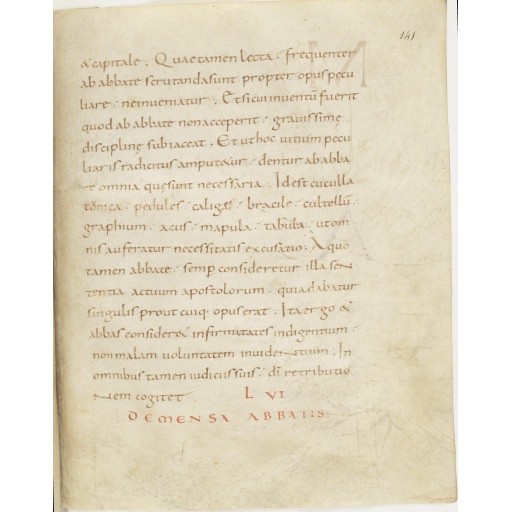 141
& capitale . Quae tamen lecta . frequenter
ab abbate scrutanda sunt propter opus pecu
liare . ne inueniatur . Et si cui inuentū fuerit
quod ab abbate non acceperit . grauissimę
disciplinę subiaceat . Et ut hoc uitium pecu
liaris radicitus amputetur . dentur ab abba
te omnia quę sunt necessaria . Id est cuculla
tonica . pedules . caligas . bracile . cultellū .
graphium . acus . mapula . tabula . ut om
nis auferatur necessitatis excusatio . A quo
tamen abbate . semp consideretur illa sen
tentia actuum apostolorum . quia dabatur
singulis prout cuiq; opus erat . Ita ergo &
abbas consider& infirmitates indigentium .
non malam uoluntatem inuidentium . In
omnibus tamen iudiciis suis . dī retributio
nem cogitet . LVI
DE MENSA ABBATIS